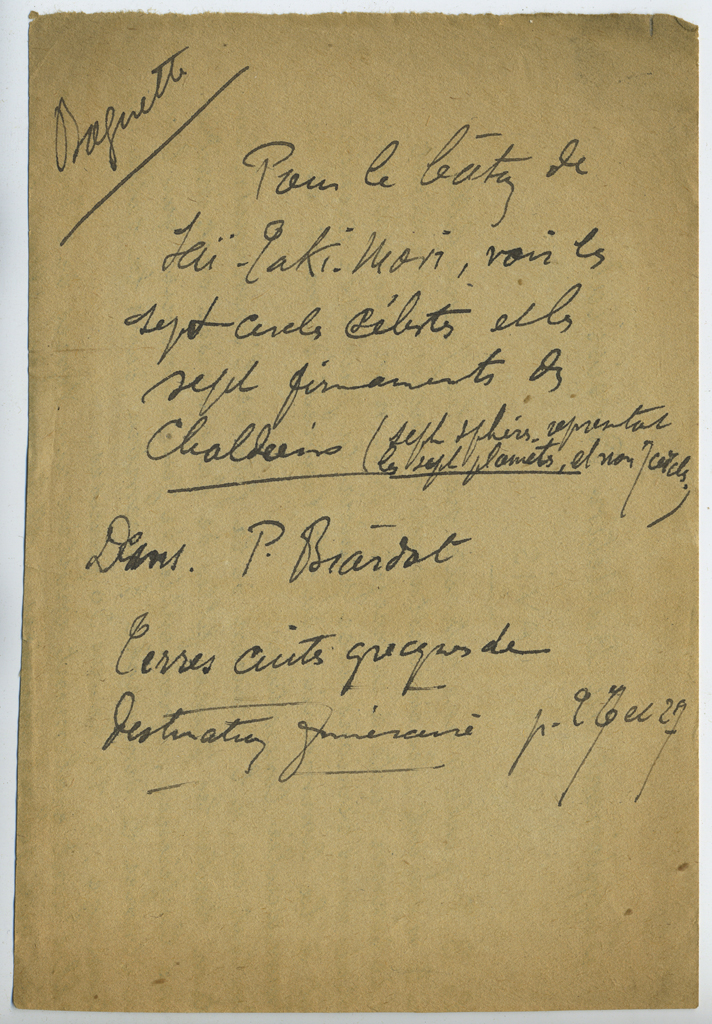 Baguette
Pour le bâton de
Taki-Mori, voir les
sept cercles célestes et les
sept firmaments des
Chaldéens (sept sphères représentant
les sept planètes, et non 7 cercles)
Dans. P. Biardot
Terres cuites grecques de
destination funéraire p. et 27